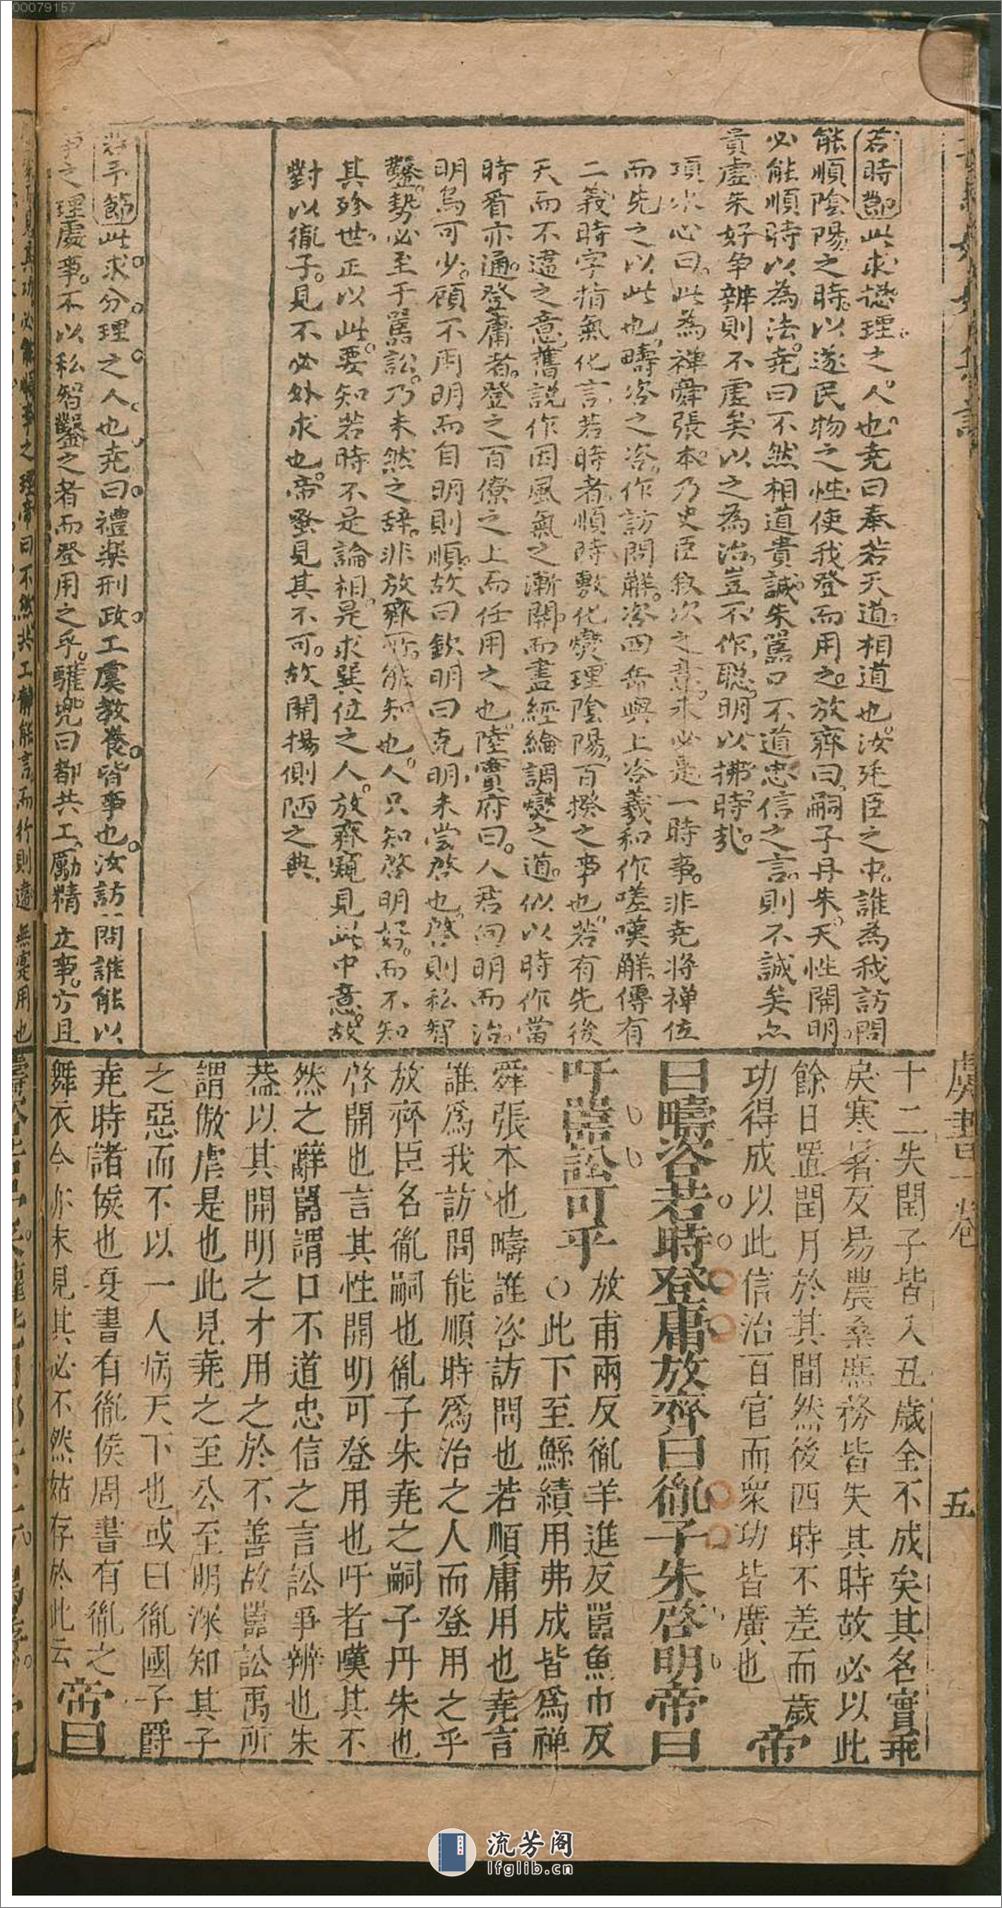 00079157
虞書一卷
五
若時節此求總理之人也堯曰奉若天道相道也汝廷臣之中誰為我訪問
能順陰陽之時以遂民物之性使我登而用之放齊曰嗣子丹朱天性開明
必能順時以為法堯曰不然相道貴誠朱嚚口不道忠信之言則不誠矣尒
貴虛朱好争辨則不虛矣以之為治豈不作聰明以拂時哉
項水心曰此為禪舜張本乃史臣敘次之意未必是一時事非堯將禪位
而先之以此也疇咨之咨作訪問解咨四岳與上咨羲和作嗟嘆解傳有
二義時字指氣化言若時者順時敷化爕理陰陽百揆之事也若有先後
天而不違之意舊說作因風氣之漸開而盡經綸調爕之道似以時作當
時看亦通登庸者登之百僚之上而任用之也陸實府曰人君向明而治
明烏可少顧不両明而自明則順故曰欽明曰克明未嘗啓也啓則私智
鑿勢必至于嚚訟乃未然之辞非放齊所能知也人只知啓明好而不知
其殄世正以此要知若時不是論相是求巽位之人放齊窺見此中意故
對以胤子見不必外求也帝蚤見其不可故開揚側陋之典
若予節此求分理之人也堯曰禮樂刑政工虞教養皆事也汝訪問誰能以
事之理處事不以私智鑿之者而登用之乎驩兜曰都共工勵精立事方且
十二失閏子皆入丑歲全不成矣其名實乖
戾寒暑反易農桑庶務皆失其時故必以此
餘日置閏月於其間然後四時不差而歲
功得成以此信治百官而衆功皆廣也帝
曰疇咨若時登庸放齊曰胤子朱啓明帝曰
吁嚚訟可乎放甫兩反胤羊進反嚚魚巾反
○此下至鯀績用弗成皆爲禪
舜張本也疇誰咨訪問也若順庸用也堯言
誰爲我訪問能順時爲治之人而登用之乎
放齊臣名胤嗣也胤子朱堯之嗣子丹朱也
啓開也言其性開明可登用也吁者嘆其不
然之辭嚚謂口不道忠信之言訟爭辨也朱
葢以其開明之才用之於不善故嚚訟禹所
謂傲虐是也此見堯之至公至明深知其子
之惡而不以一人病天下也或曰胤國子爵
堯時諸侯也夏書有胤侯周書有胤之
舞衣今亦未見其必不然姑存於此云帝曰
流芳阁
lfglib.cn